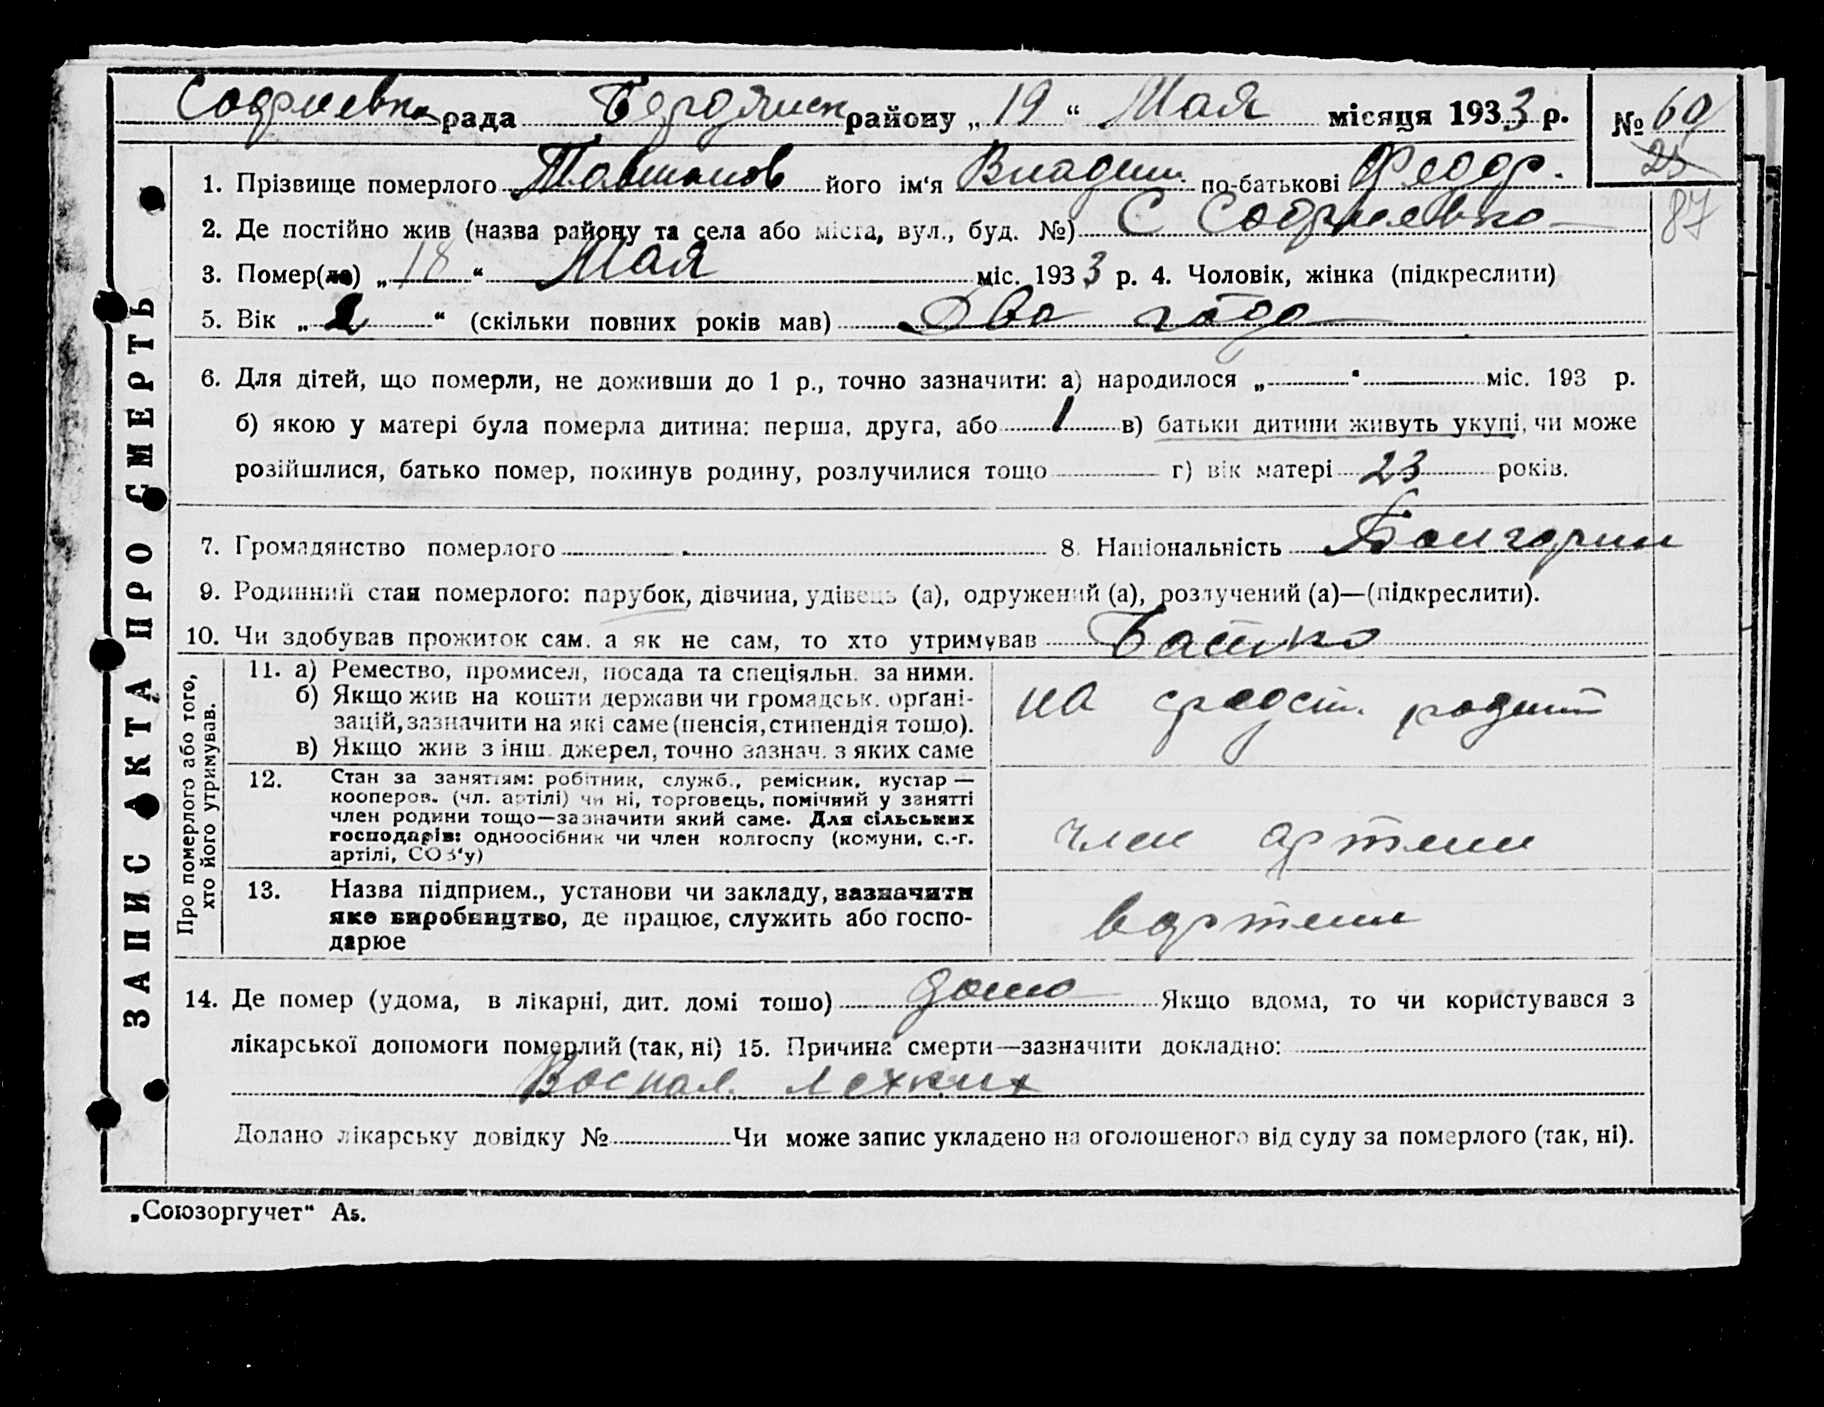 Софиевка рада Бердянск району „ 19 “ Мая місяця 1933 р. № 60
25
87
1. Прізвище померлого Тавшанов його ім'я Владим. по-батькові Федор.
2. Де постійно жив (назва району та села або міста, вул., буд. №) С Софиевка
3. Помер(ла) „ 18 “ Мая міс. 1933 р. 4. Чоловік, жінка (підкреслити)
5. Вік „ 2 “ (скільки повних років мав) Два года
6. Для дітей, що померли, не доживши до 1 р., точно зазначити: а) народилося „ “ міс. 193 р.
б) якою у матері була померла дитина: перша, друга, або 1 в) батьки дитини живуть укупі, чи може
розійшлися, батько помер, покинув родину, розлучилися тощо г) вік матері 23 років.
7. Громадянство померлого 8. Національність Болгарин
9. Родинний стан померлого: парубок, дівчина, удівець (а), одружений (а), розлучений (а)—(підкреслити).
10. Чи здобував прожиток сам, а як не сам, то хто утримував Батько
ЗАПИС АКТА ПРО СМЕРТЬ
Про померлого або того,
хто його утримував.
11. а) Ремество, промисел, посада та спеціяльн. за ними.
б) Якщо жив на кошти держави чи громадськ. органі-
зацій, зазначити на які саме (пенсія, стипендія тощо).
в) Якщо жив з інш. джерел, точно зазнач. з яких саме
на средст. родит
12. Стан за заняттям: робітник, служб., ремісник, кустар —
кооперов. (чл. артілі) чи ні, торговець, помічний у занятті
член родини тощо—зазначити який саме. Для сільських
господарів: одноосібник чи член колгоспу (комуни, с.-г.
артілі, СОЗ'у)
член артели
13. Назва підприєм., установи чи закладу, зазначити
яке виробництво, де працює, служить або госпо-
дарює
в артели
14. Де помер (удома, в лікарні, дит. домі тощо) дома Якщо вдома, то чи користувався з
лікарської допомоги померлий (так, ні) 15. Причина смерти—зазначити докладно:
Воспал. лехких
Додано лікарську довідку № Чи може запис укладено на оголошеного від суду за померлого (так, ні).
„Союзоргучет“ А5.